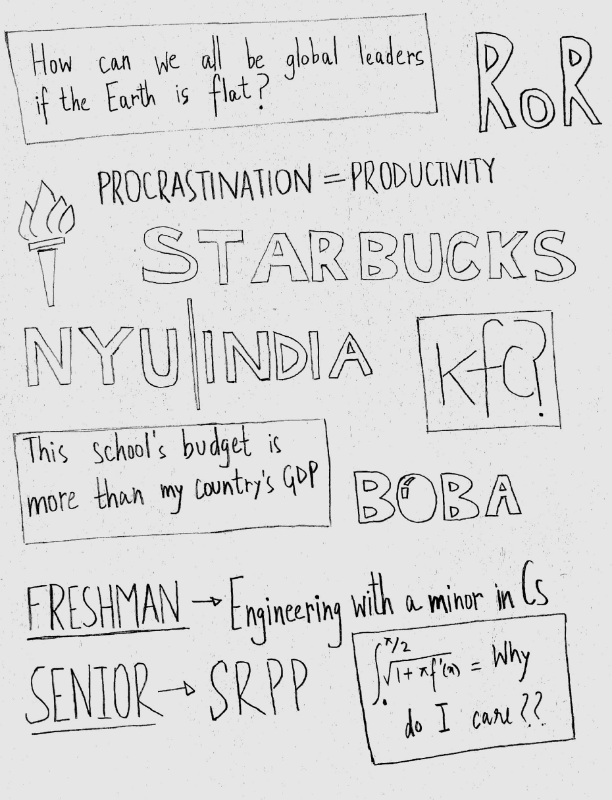 How can we all be global leaders
if the Earth is flat?
RoR
PROCRASTINATION = PRODUCTIVITY
STARBUCKS
NYU|INDIA
Kfc?
This school's budget is
more than my country's GDP
BOBA
FRESHMAN → Engineering with a minor in Cs
SENIOR → SRPP
∫ π/2 √1 + πf'(x) = Why
do I care??